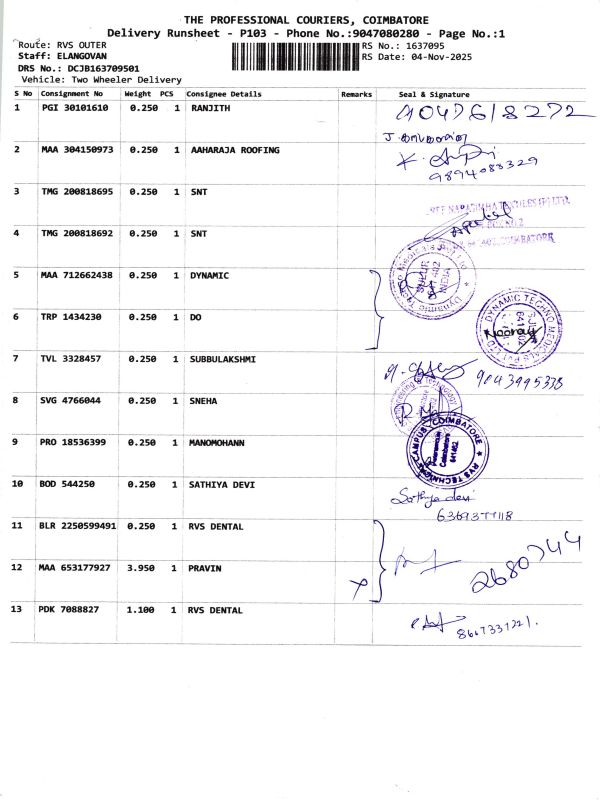 THE PROFESSIONAL COURIERS, COIMBATORE
Delivery Runsheet - P103 - Phone No.:9047080280 - Page No.:1
Route: RVS OUTER RS No.: 1637095
Staff: ELANGOVAN RS Date: 04-Nov-2025
DRS No.: DCJB163709501
Vehicle: Two Wheeler Delivery
S No Consignment No Weight PCS Consignee Details Remarks Seal & Signature
1 PGI 30101610 0.250 1 RANJITH
2 MAA 304150973 0.250 1 AAHARAJA ROOFING
9894083329
3 TMG 200818695 0.250 1 SNT
4 TMG 200818692 0.250 1 SNT
5 MAA 712662438 0.250 1 DYNAMIC
6 TRP 1434230 0.250 1 DO
DYNAMIC TECHNO MEDICALS PVT LTD
7 TVL 3328457 0.250 1 SUBBULAKSHMI
9043995338
8 SVG 4766044 0.250 1 SNEHA
9 PRO 18536399 0.250 1 MANOMOHANN
RVS TECHNICAL CAMPUS - COIMBATORE
Coimbatore
641402
10 BOD 544250 0.250 1 SATHIYA DEVI
Sathya devi
11 BLR 2250599491 0.250 1 RVS DENTAL
12 MAA 653177927 3.950 1 PRAVIN
2680744
13 PDK 7088827 1.100 1 RVS DENTAL
8667331221.